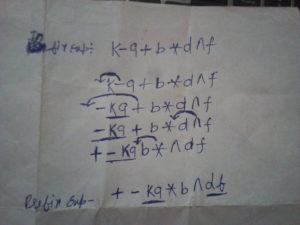 Infix Exp: K-q+b*d∧f
K-q+b*d∧f
-Kq+b*d∧f
-Kq+b*d∧f
+-Kqb*∧df
Prefix Exp- +-Kq*b∧df